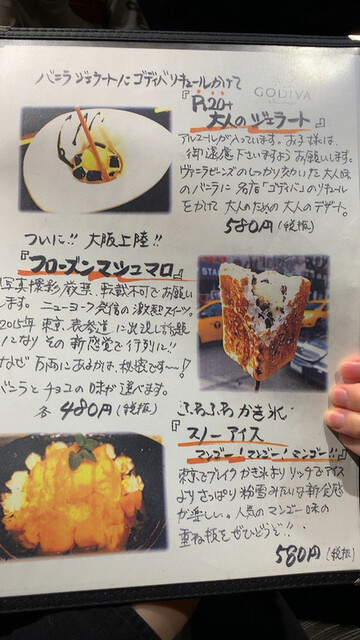 バニラジェラートにゴディバリキュールかけて
GODIVA
『R20+
大人のジェラート』
アルコールが入っています。お子様は、
御遠慮下さいますようお願いします。
ヴァニラビーンズのしっかり効いた大人味
のバニラに名店「ゴディバ」のリキュール
をかけて 大人のための大人のデザート。
580円(税抜)
ついに!! 大阪上陸!!
『フローズンマシュマロ』
写真撮影厳禁、転載不可でお願い
します。ニューヨーク発信の激熱スイーツ。
2015年東京、表参道に出店して話題
になりその新感覚で行列に!!
なぜ万両にあるかは、秘密です〜!
バニラとチョコの味が選べます。
各 480円(税抜)
ふわふわかき氷
『スノーアイス
マンゴー!マンゴー!マンゴー!!』
東京でブレイク かき氷より リッチでアイス
よりさっぱり 粉雪みたいな新食感
が楽しい。人気のマンゴー味の
重ね技をぜひどうぞ!!
580円(税抜)